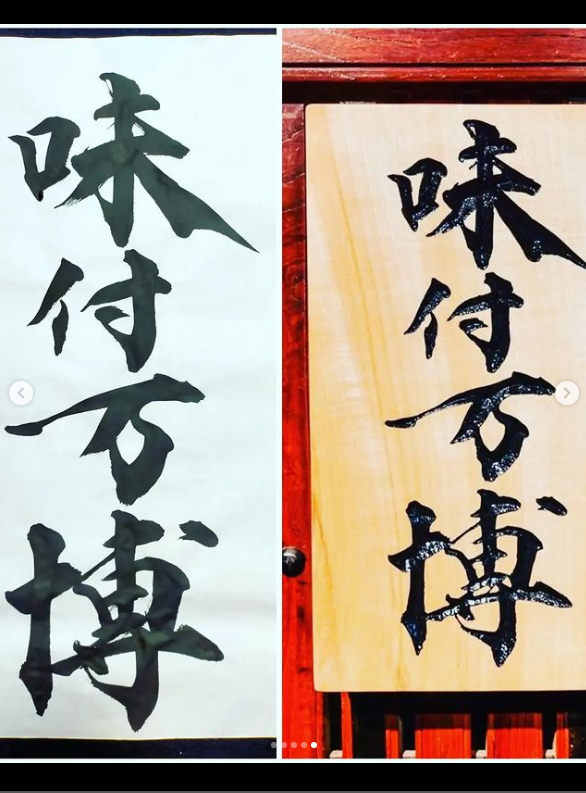 味付万博
味付万博